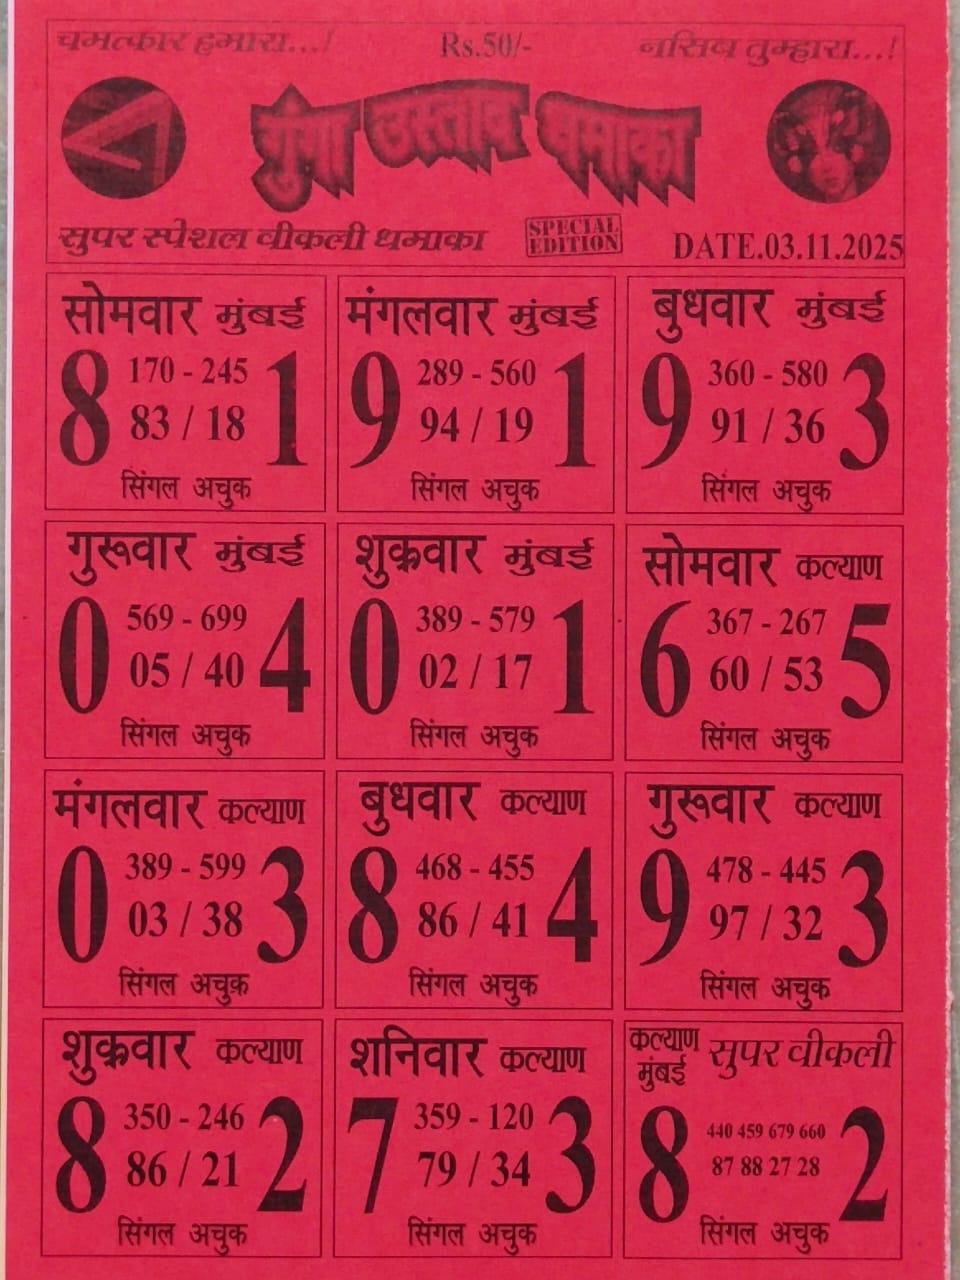 चमत्कार हमारा...! Rs.50/- नसिब तुम्हारा...!
गुंगा उस्ताद धमाका
सुपर स्पेशल वीकली धमाका SPECIAL EDITION DATE.03.11.2025
सोमवार मुंबई
8 170 - 245 1
83 / 18
सिंगल अचुक
मंगलवार मुंबई
9 289 - 560 1
94 / 19
सिंगल अचुक
बुधवार मुंबई
9 360 - 580 3
91 / 36
सिंगल अचुक
गुरूवार मुंबई
0 569 - 699 4
05 / 40
सिंगल अचुक
शुक्रवार मुंबई
0 389 - 579 1
02 / 17
सिंगल अचुक
सोमवार कल्याण
6 367 - 267 5
60 / 53
सिंगल अचुक
मंगलवार कल्याण
0 389 - 599 3
03 / 38
सिंगल अचुक
बुधवार कल्याण
8 468 - 455 4
86 / 41
सिंगल अचुक
गुरूवार कल्याण
9 478 - 445 3
97 / 32
सिंगल अचुक
शुक्रवार कल्याण
8 350 - 246 2
86 / 21
सिंगल अचुक
शनिवार कल्याण
7 359 - 120 3
79 / 34
सिंगल अचुक
कल्याण मुंबई सुपर वीकली
8 440 459 679 660 2
87 88 27 28
सिंगल अचुक